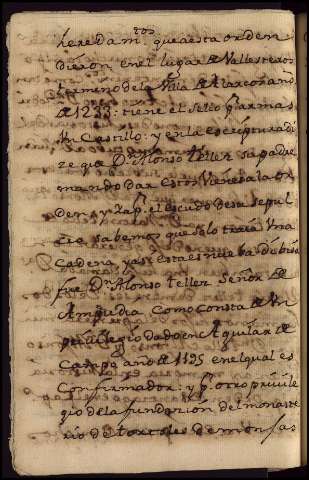 heredamtos. que a esta orden
dieron en el lugar de Vallesteros
termino de la Villa de Alarcon año
de 1233: tiene el sello pr. armas
Un Castillo: y en la escriptura di
ze que Dn. Alonso Teller su padre
mando dar estos vienes a la or
den: y xap. el escudo de su sepul
cro sabemos que solo traia Una
Cadena
fue Dn. Alonso Teller Señor de
Ampudia Como Consta de Un
privilegio dado en Aguilar de
Campo año de 1195 en el qual es
Confirmador: y pr. otro privile
gio de la fundazion del monaste
rio de torcoles de monjas